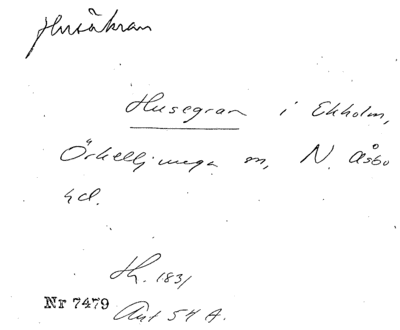 Husåkran
Husegran i Ekholm,
Örkelljunga sn, N. Åsbo
hd.
Hh. 1831
Nr 7479 Akt 54 A.